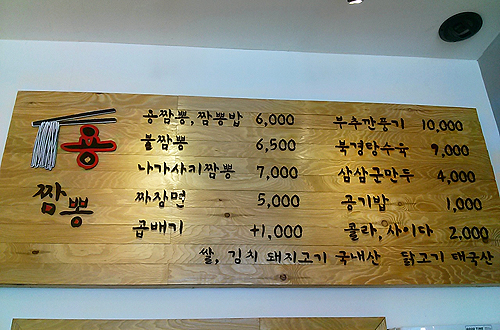 용
짬뽕
용짬뽕, 짬뽕밥 6,000
불짬뽕 6,500
나가사키짬뽕 7,000
짜장면 5,000
곱배기 +1,000
부추깐풍기 10,000
북경탕수육 9,000
삼삼군만두 4,000
공기밥 1,000
콜라, 사이다 2,000
쌀, 김치 돼지고기 국내산 닭고기 태국산